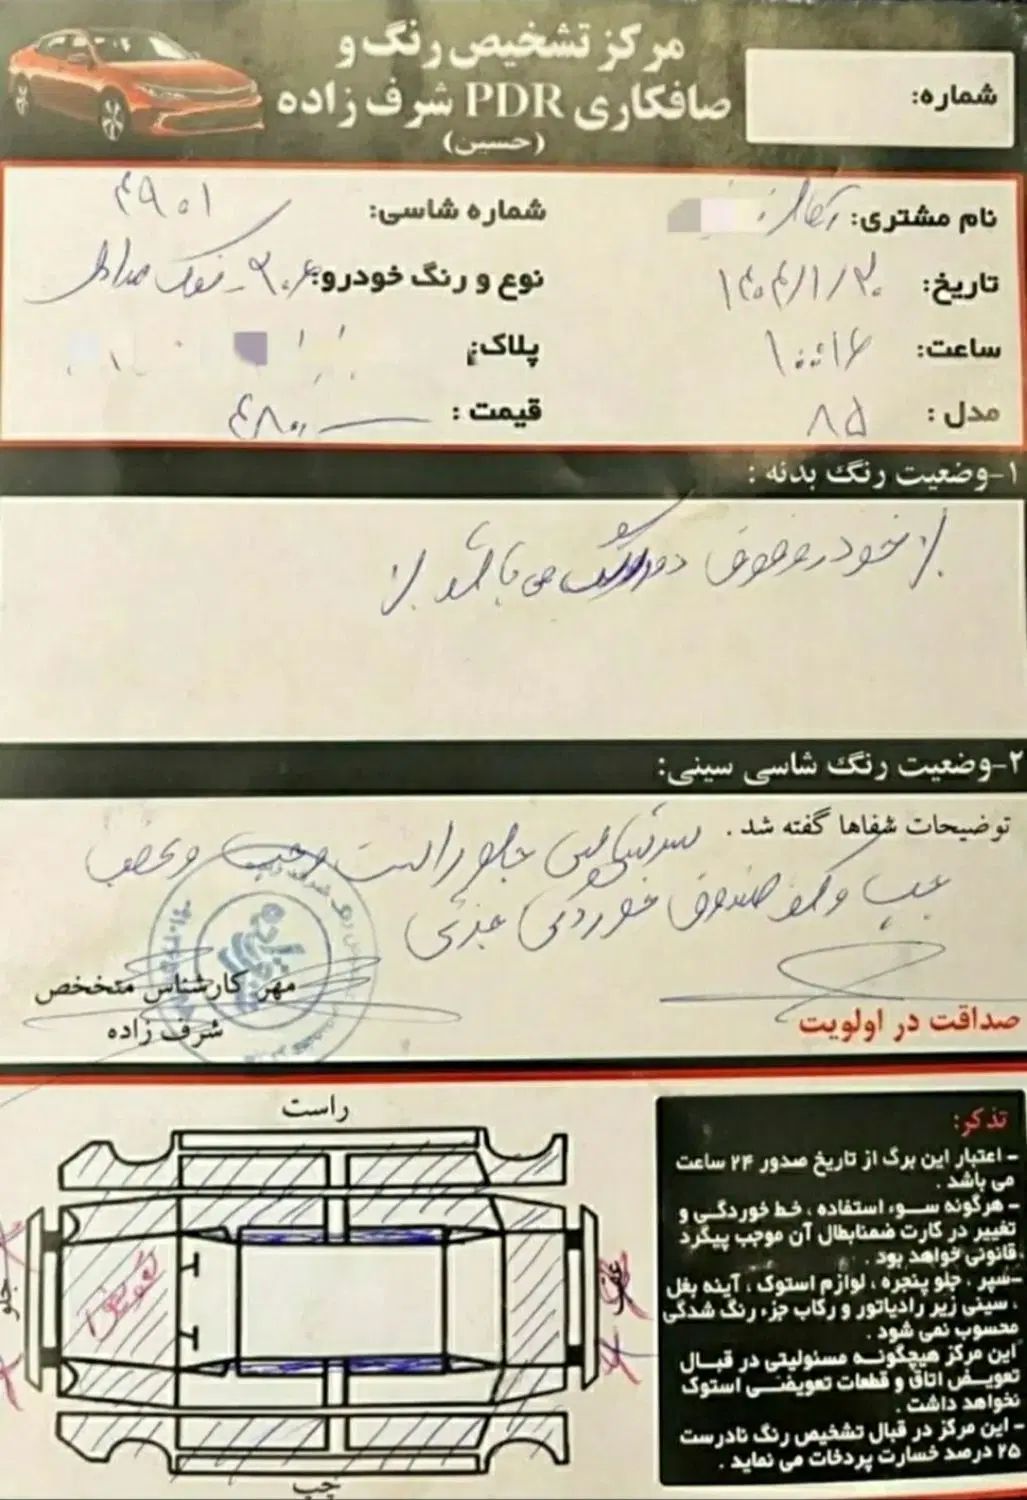 مرکز تشخیص رنگ و
صافکاری PDR شرف زاده
(حسین)
شماره:
نام مشتری:
شماره شاسی: ۴۹۰۱
تاریخ: ۱۴۰۴/۱/۳۰
نوع و رنگ خودرو: ۲۰۶ - نوک مدادی
ساعت: ۱۰:۱۶
پلاک:
مدل : ۸۵
قیمت : ۴۸۰۰
۱-وضعیت رنگ بدنه :
خودرو فوق دور رنگ می باشد
۲-وضعیت رنگ شاسی سینی:
توضیحات شفاها گفته شد .
سرشاسی جلو راست و چپ و عقب
چپ و کف صندوق خوردگی جزئی
مهر کارشناس متخخص
شرف زاده
صداقت در اولویت
راست
جلو
تعویض
عقب
چپ
تذکر:
- اعتبار این برگ از تاریخ صدور ۲۴ ساعت
می باشد .
- هرگونه سوء استفاده ، خط خوردگی و
تغییر در کارت ضمنابطال آن موجب پیگرد
قانونی خواهد بود .
-سپر ، جلو پنجره ، لوازم استوک ، آینه بغل
، سینی زیر رادیاتور و رکاب جزء رنگ شدگی
محسوب نمی شود .
این مرکز هیچگونه مسئولیتی در قبال
تعویض اتاق و قطعات تعویضی استوک
نخواهد داشت .
- این مرکز در قبال تشخیص رنگ نادرست
۲۵ درصد خسارت پردخات می نماید .